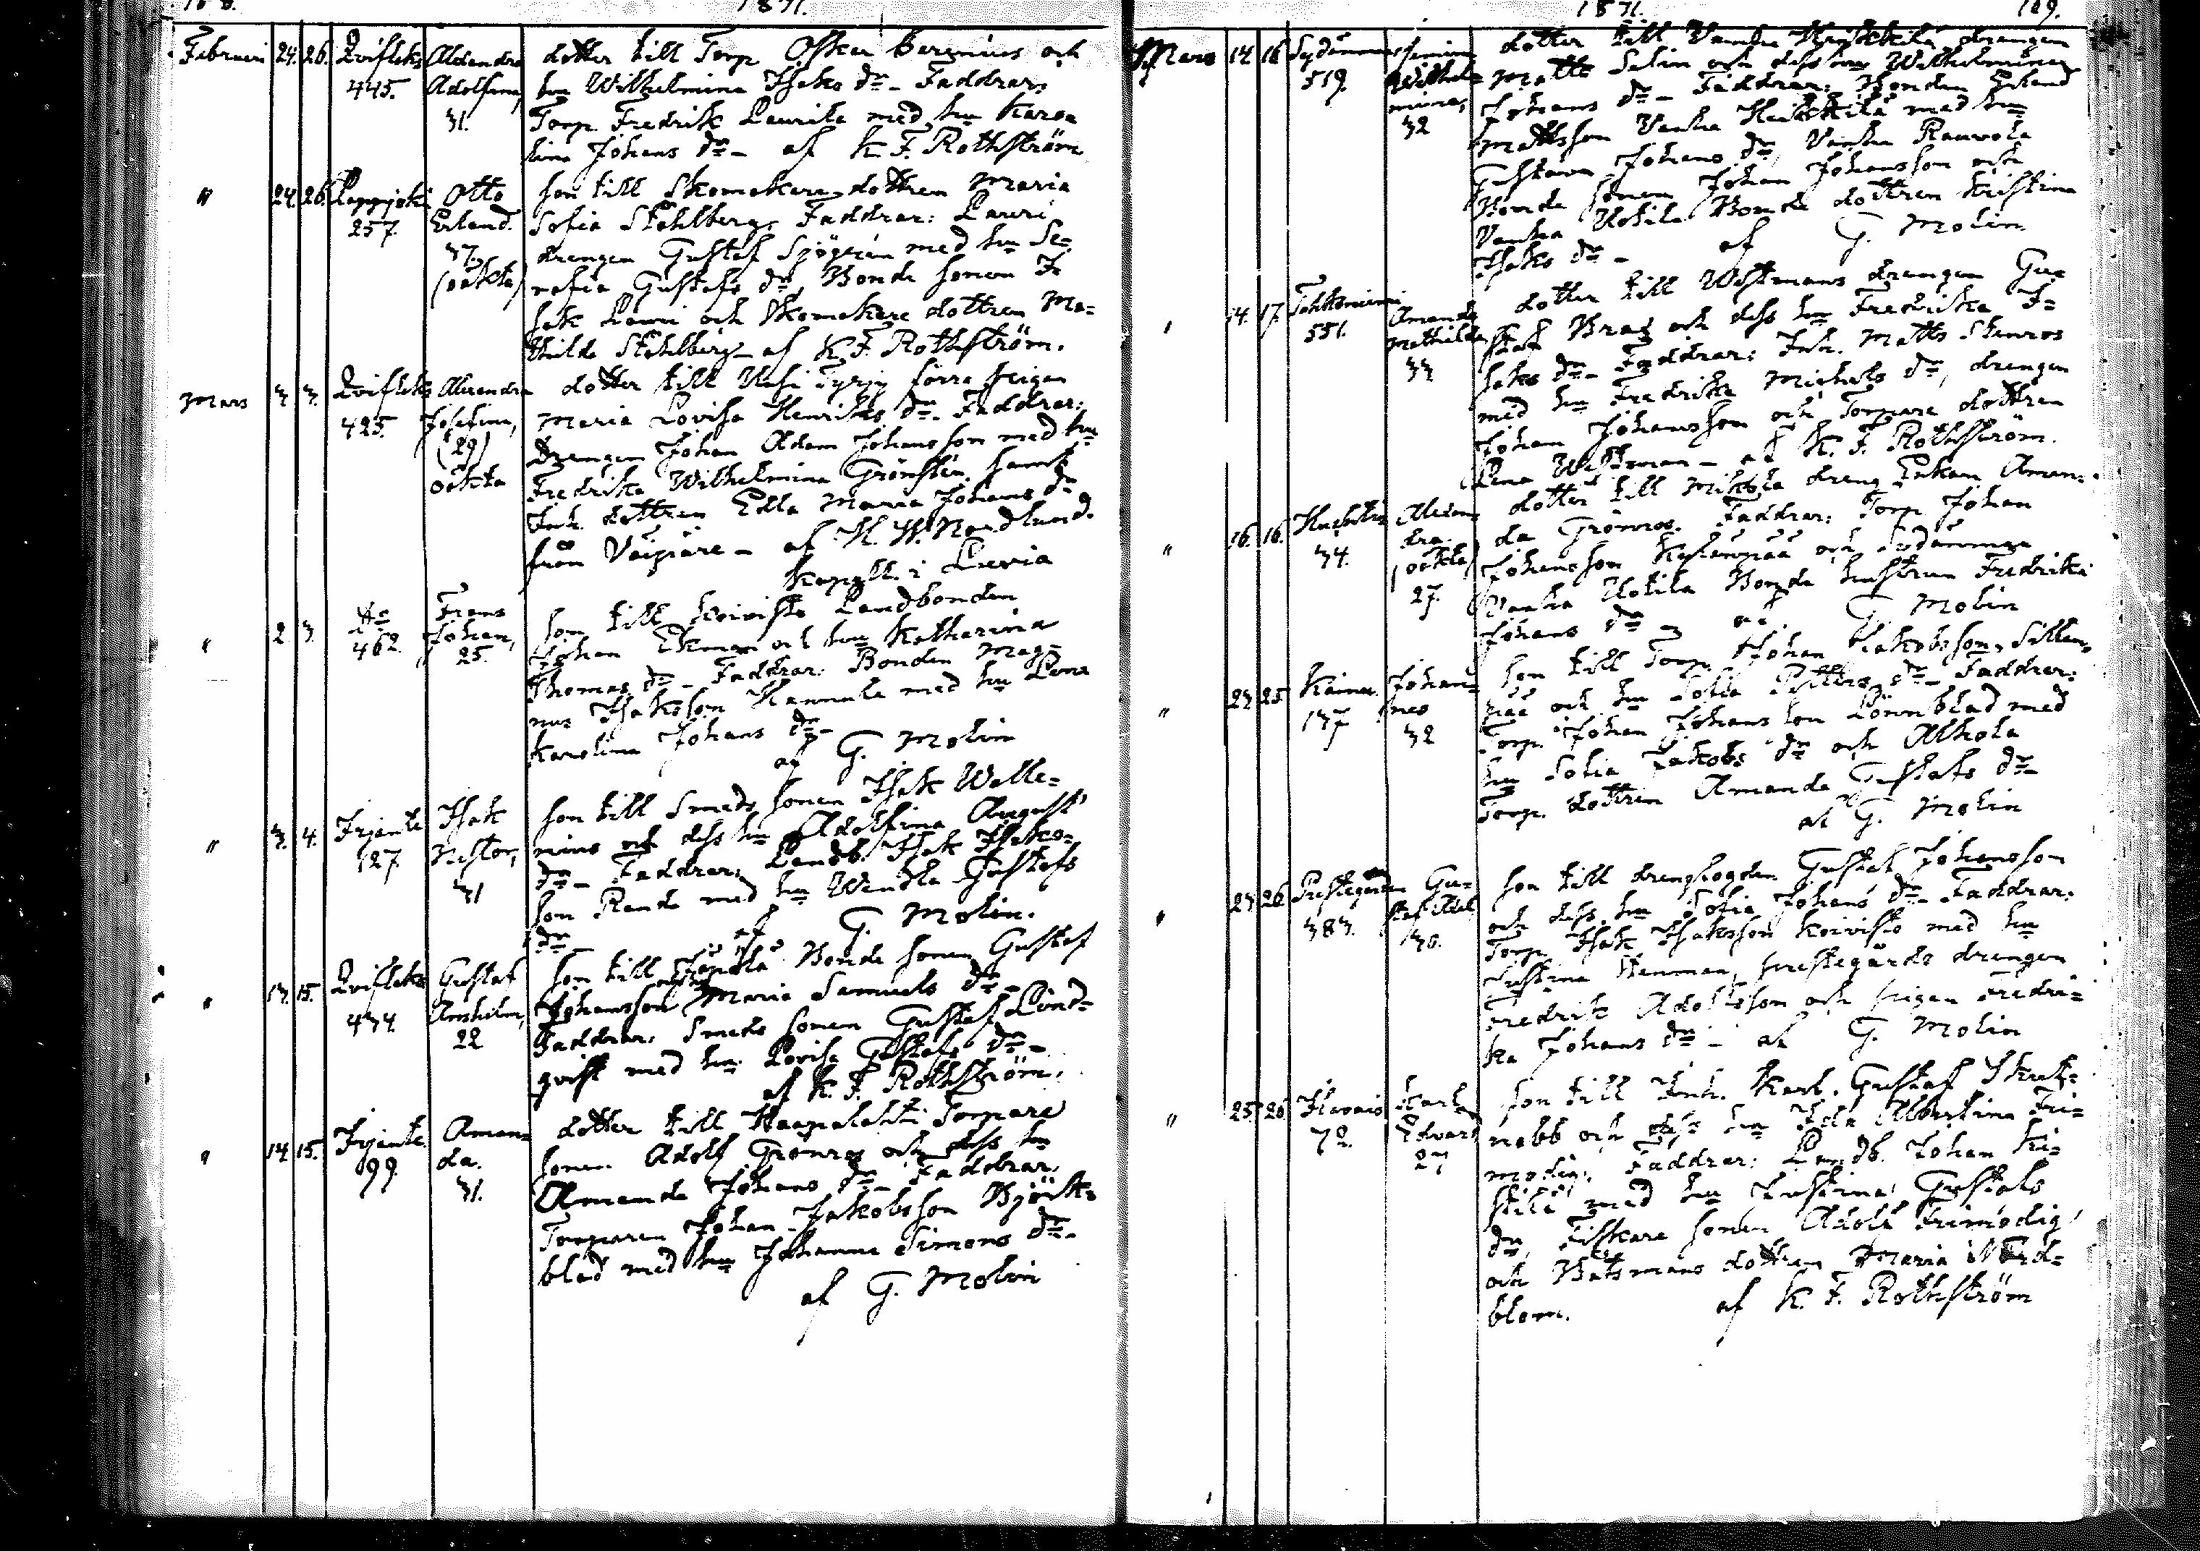 1871.
Februari 24. 26. Qvisleks 445. Alexandra Adolfina, 31.
dotter till Torp Oskar Bergnius och
hu Wilhelmina Isaks dr - Faddrar:
Torp Fredrik Laurila med hu Karo
lina Johans dr - af K. F. Rothström
" 24. 26. Lappijoki 257. Otto Erland. 37. (oäkta)
son till Skomakare dottren Maria
Sofia Stohlberg, Faddrar: Lauri
drengen Gustaf Sjögren med hu Se-
rafia Gustafs dr, Bonde sonen I
sak Lauri och Skomakare dottren Ma-
thilda Stohlberg - af K. F. Rothström.
Mars 3. 3. Qvisleks 425. Alexandra Josefina, (29) oäkta
dotter till förra pigan
Maria Lovisa Henriks dr. Faddrar:
Drengen Johan Adam Johansson med hu
Fredrika Wilhelmina Grönsten samt
Inh. dottren Edla Maria Johans dr
från - af K. W. Nordlund.
Kapell. i Luvia
" 2 3. 462. Frans Johan, 25.
son till Koivisto Landbonden
Johan Ekman och hu Katharina
Thomas dr - Faddrar: Bonden Mag-
nus Isaksson Hannula med hu Lena
Karolina Johans dr -
af G. Molin
" 3. 4. Irjante 127. Isak Nestor, 31
son till Smeds sonen Isak Welle-
nius och dess hu Adolfina August
dr - Faddrar: Landb. Isak Isaks-
son Rande med hu Wendla Gustafs
dr af G. Molin.
" 13. 15. Qvisleks 434. Gustaf Anshelm, 22
son till Bonde sonen Gustaf
Johansson Maria Samuels dr -
Faddrar: Smeds sonen Gustaf Lind-
qvist med hu Lovisa Gustafs dr -
af K. F. Rothström.
" 14 15. Irjante 99. Aman- da. 31.
dotter till Haapalahti Torpare
sonen Adolf Grönros och dess hu
Amanda Johans dr - Faddrar,
Torparen Johan Jakobsson Björk-
blad med hu Johanna Simons dr -
af G. Molin
1871. 129.
Mars 14 18 Sydänmaa 519. Wilhel- mina, 32
dotter till Vanha drengen
Matts Salin och dess hu Wilhelmina
Johans dr - Faddrar: Bonden Erland
Mattsson Vanha med hu
Gustava Johans dr, Vanha Rauvola
Bonde sonen Johan Johansson och
Vanha Uotila Bonde dottren Kristina
Isaks dr - af G. Molin.
" 14. 17. 551. Amanda Mathilda 33
dotter till Westmans drengen Gu-
staf Brag och dess hu Fredrika I-
saks dr - Faddrar: Inh. Matts Stenros
med hu Fredrika Michels dr, drengen
Johan Johansson och Torpare dottren
Lena Westman - af K. F. Rothström.
" 16. 16. 34. Alexan- dra. (oäkta) 27.
dotter till Mikola dreng Enkan Aman-
da Grönros. Faddrar: Torp Johan
Johansson och Sydänmaa
Vanha Uotila Bonde hustrun Fredrika
Johans dr - af G. Molin
" 23 25. 137 Johan- nes 32
son till Torp. Johan Jakobsson Sillan-
pää och hu Sofia Petters dr - Faddrar:
Torp. Johan Johansson Lönnblad med
hu Sofia Jakobs dr och Alhola
Torp. dottren Amanda Gustafs dr -
af G. Molin
" 23 26 Prestegården 383. Gu- staf 30.
son till drengfogden Gustaf Johansson
och dess hu Sofia Johans dr - Faddrar:
Torp. Isak Isaksson Koivisto med hu
Justina Stenman, prestegårds drengen
Fredrik Adolfsson och pigan Fredri-
ka Johans dr - af G. Molin
" 25. 26 72. Karl Edvard 27
son till Inh. Karl Gustaf
nabb och dess hu Ida Albertina Fri-
modig. Faddrar: Landb. Johan Ki-
stilä med hu Justina Gustafs
dr, Fiskare sonen Adolf Frimodig
och Båtsmans dottren Maria Nord-
blom. af K. F. Rothström